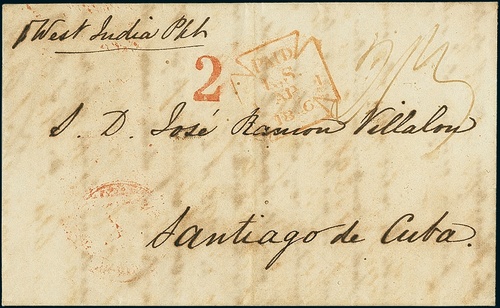 West India Pkt
2
PAID
AP
S. D. José Ramon Villalon
Santiago de Cuba.